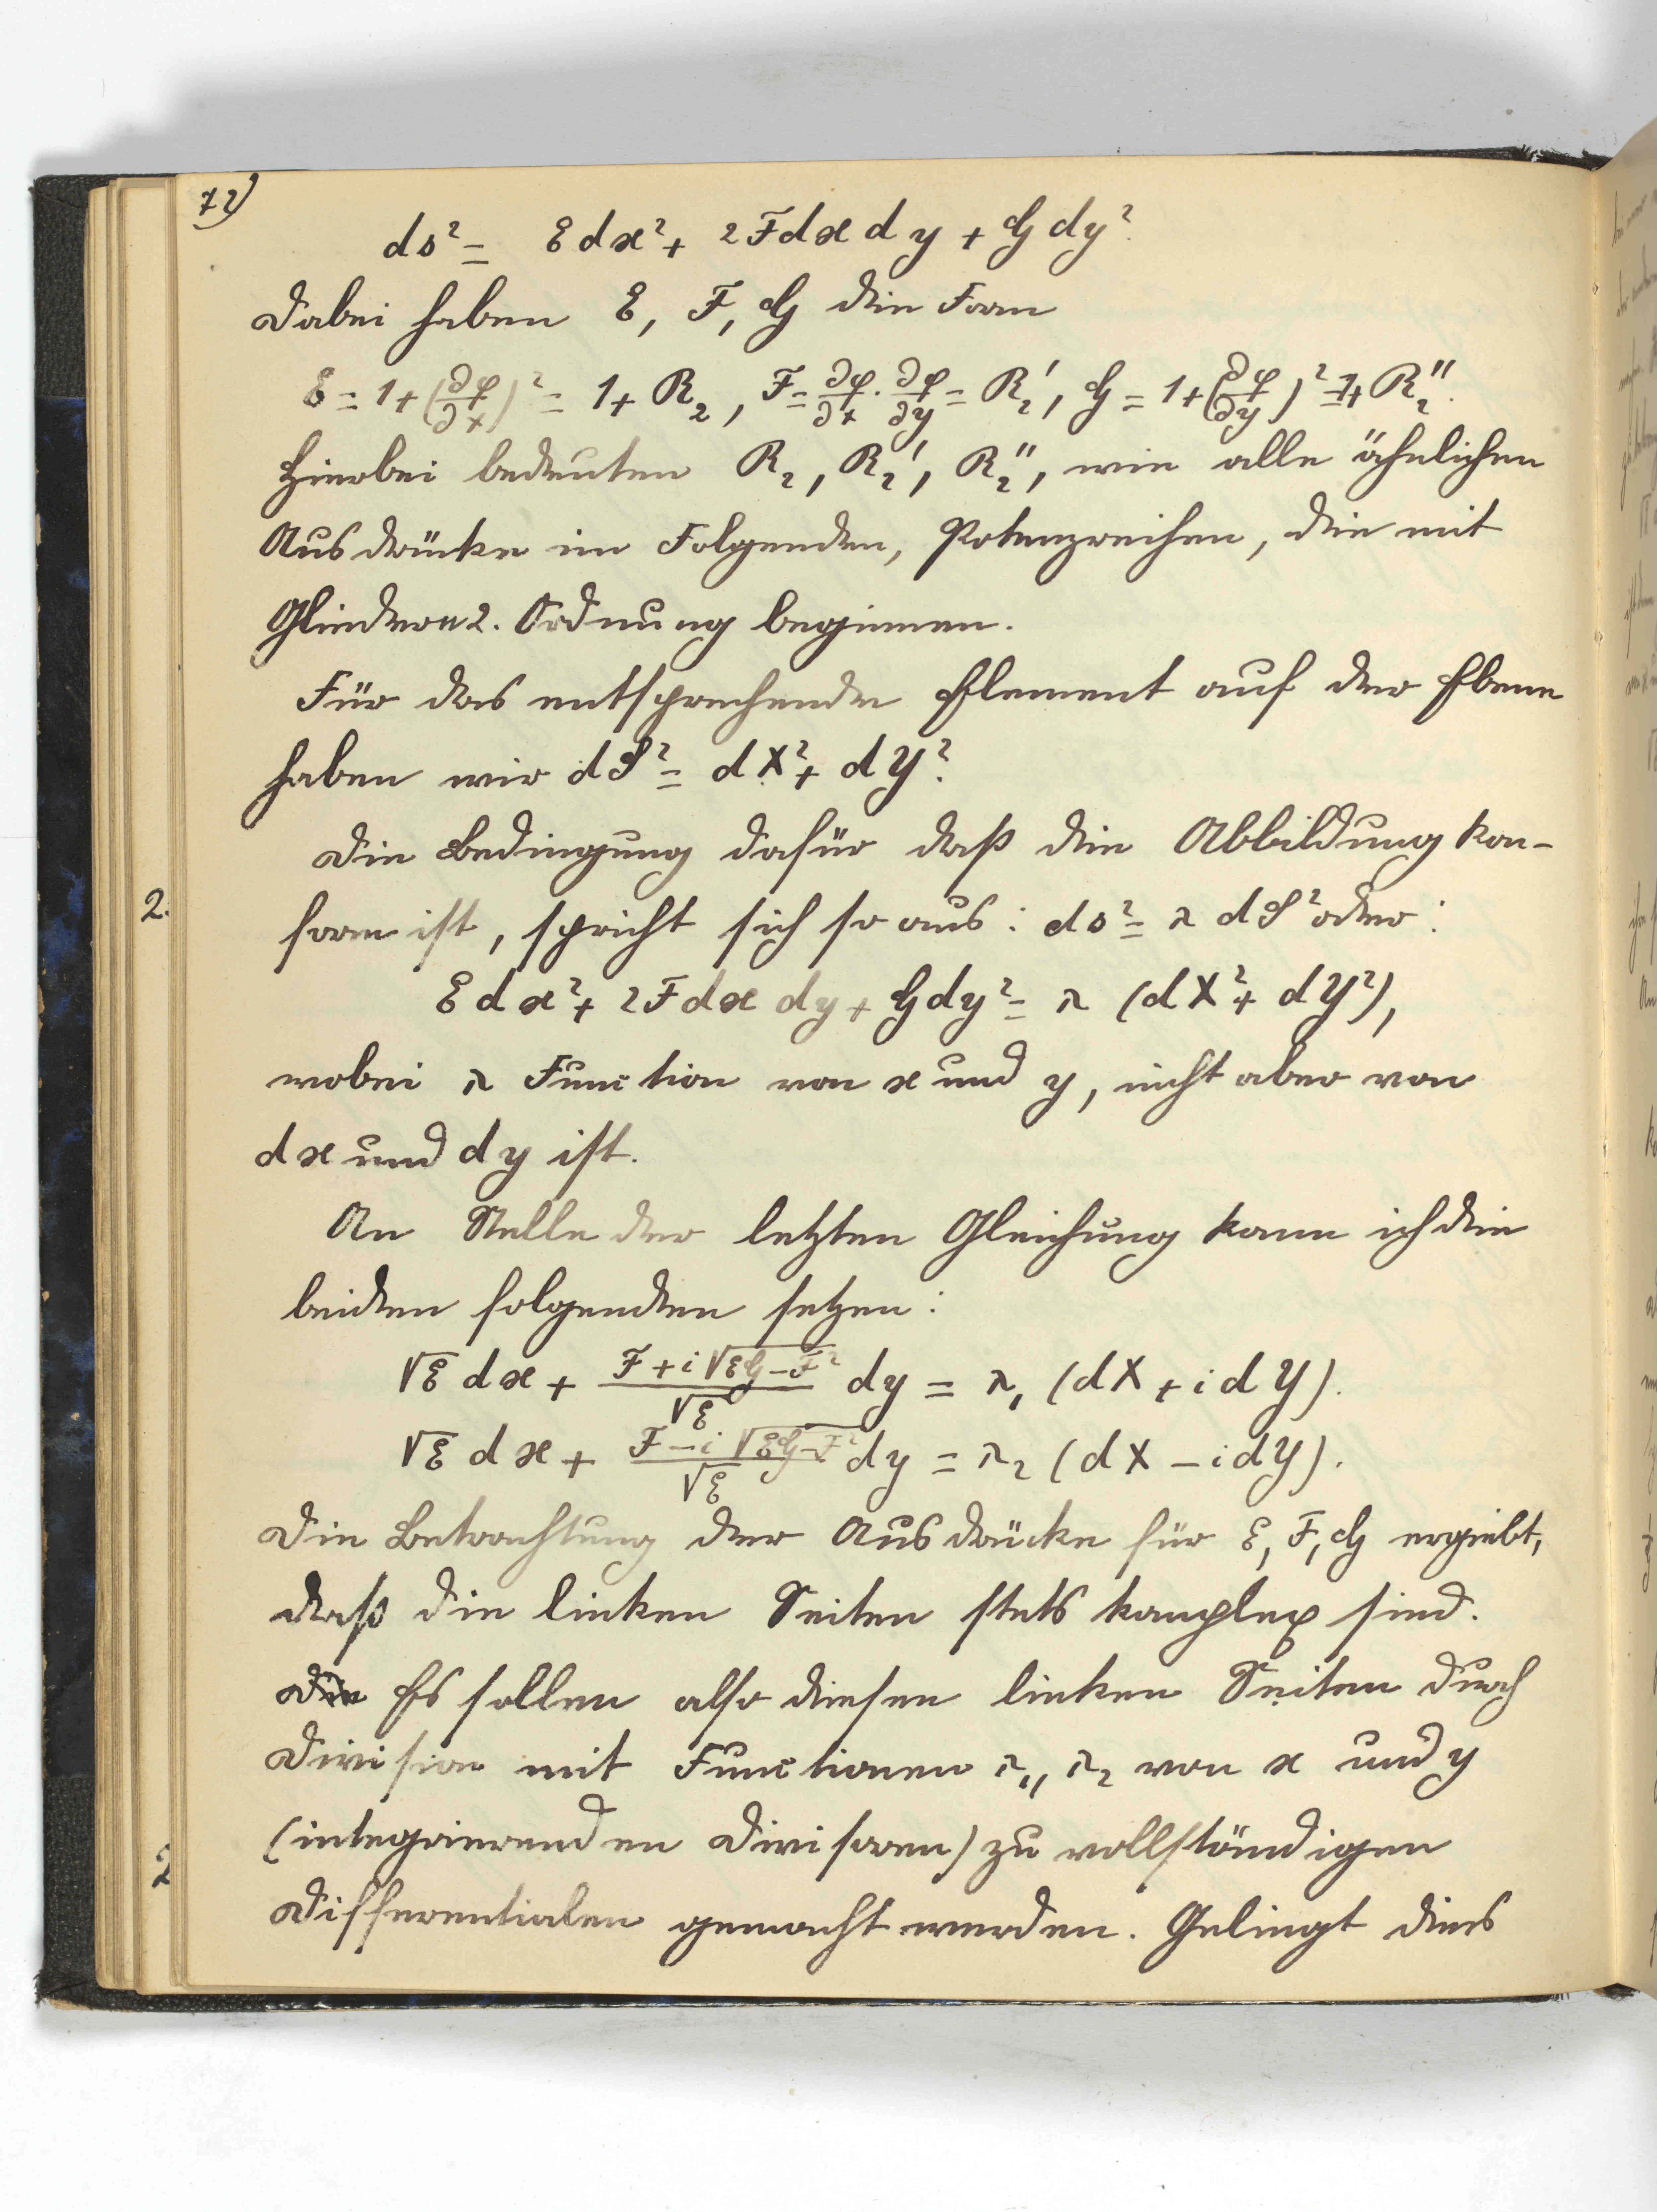 72)
ds² = E dx² + 2F dx dy + G dy².
Dabei haben E, F, G die Form
E = 1 + (∂φ/∂x)² = 1 + R₂, F = ∂φ/∂x · ∂φ/∂y = R₂', G = 1 + (∂φ/∂y)² = 1 + R₂''.
Hierbei bedeuten R₂, R₂', R₂'', wie alle ähnlichen
Ausdrücke im Folgenden, Potenzreihen, die mit
Gliedern 2. Ordnung beginnen.
Für das entsprechende Element auf der Ebene
haben wir dS² = dX² + dY².
Die Bedingung dafür daß die Abbildung kon-
form ist, spricht sich so aus: ds² = λ dS² oder:
E dx² + 2F dx dy + G dy² = λ (dX² + dY²),
wobei λ Function von x und y, nicht aber von
dx und dy ist.
An Stelle der letzten Gleichung kann ich die
beiden folgenden setzen:
√E dx + (F + i√(EG − F²))/√E dy = λ₁ (dX + i dY).
√E dx + (F − i√(EG − F²))/√E dy = λ₂ (dX − i dY).
Die Betrachtung der Ausdrücke für E, F, G ergiebt,
daß die linken Seiten stets komplex sind.
Die Es sollen also diesen linken Seiten durch
Division mit Functionen λ₁, λ₂ von x und y
(integrierenden Divisoren) zu vollständigen
Differentialen gemacht werden. Gelingt dies
2.
2